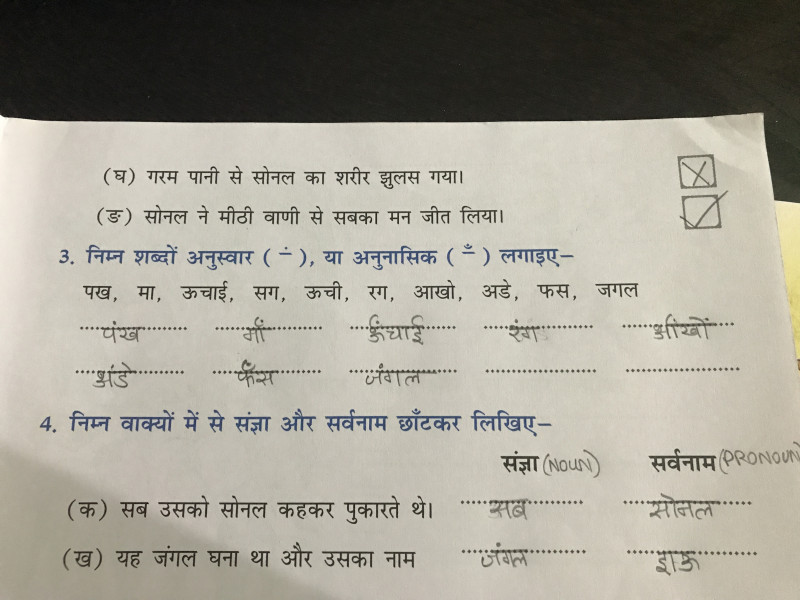 (घ) गरम पानी से सोनल का शरीर झुलस गया।
(ङ) सोनल ने मीठी वाणी से सबका मन जीत लिया।
3. निम्न शब्दों अनुस्वार ( ∸ ), या अनुनासिक ( ँ ) लगाइए–
पख, मा, ऊचाई, सग, ऊची, रग, आखो, अडे, फस, जगल
पंख माँ ऊंचाई रंग आंखों
अंडे फँस जंगल
4. निम्न वाक्यों में से संज्ञा और सर्वनाम छाँटकर लिखिए–
संज्ञा (NOUN) सर्वनाम (PRONOUN)
(क) सब उसको सोनल कहकर पुकारते थे। सब सोनल
(ख) यह जंगल घना था और उसका नाम जंगल